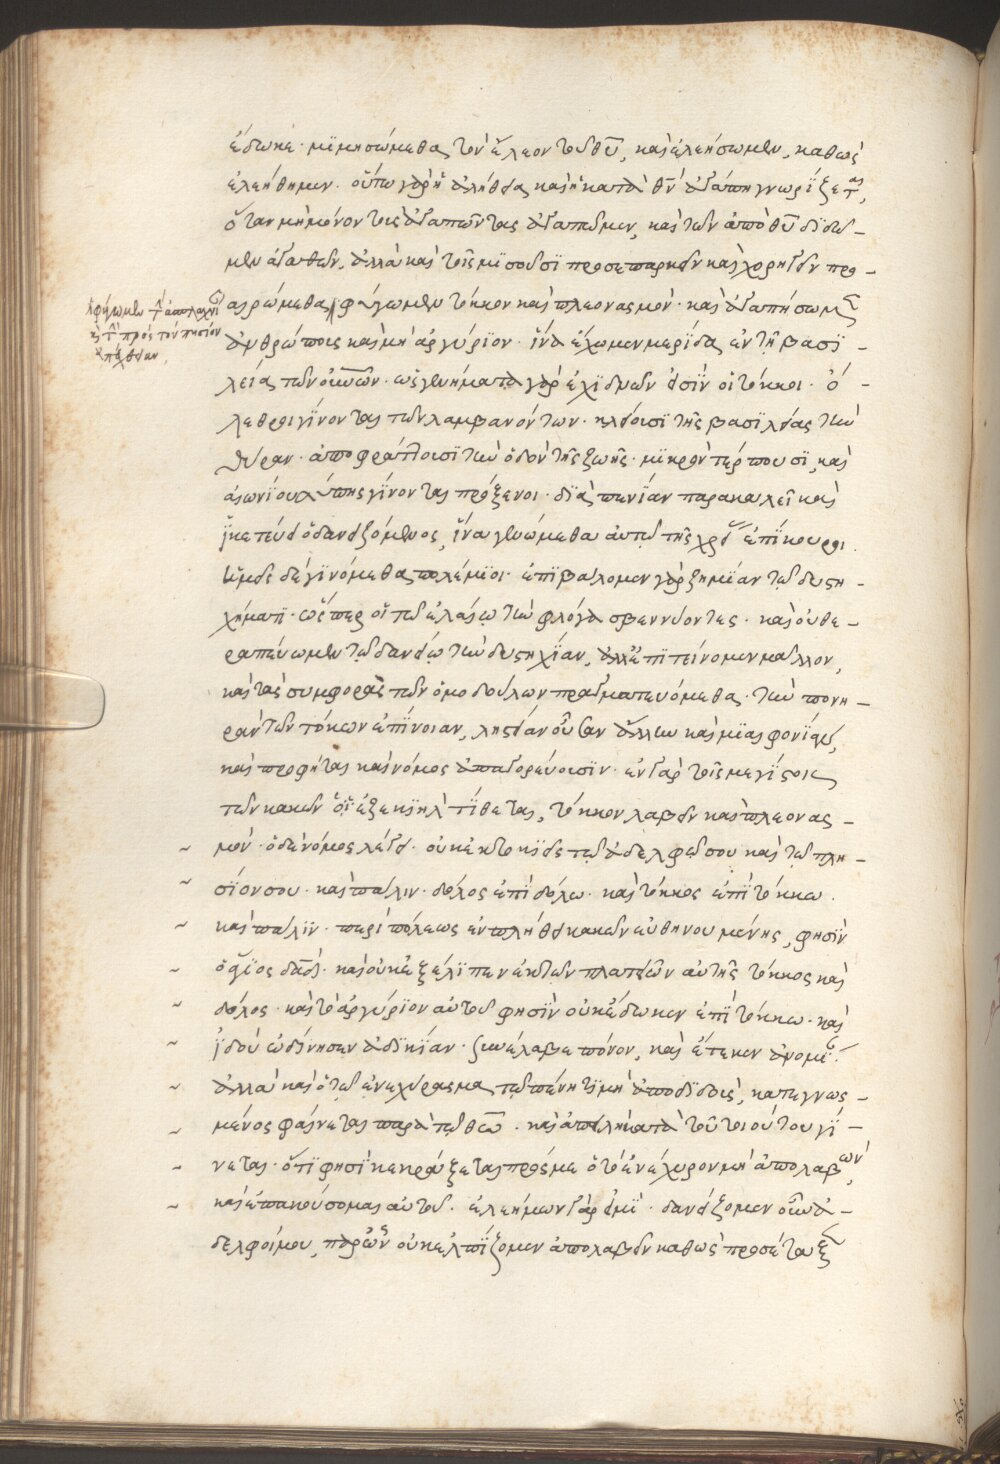 ἔδωκε· μιμησώμεθα τὸν ἔλεον τοῦ θυ, καὶ ἐλεήσωμεν, καθὼς
ἐλεήθημεν. οὕτω γὰρ ἡ ἀλήθεια καὶ ἡ κατὰ θν ἀγάπη γνωρίζεται,
ὅταν μὴ μόνον τοὺς ἀγαπῶντας ἀγαπῶμεν, καὶ τῶν ἀπὸ θυ διδω-
μεν ἀγαθῶν, ἀλλὰ καὶ τοῖς μισοῦσι προσεπαρκεῖν καὶ χορηγεῖν προ-
αιρώμεθα, φύγωμεν τόκον καὶ πλεονασμόν· καὶ ἀγαπήσωμεν
πρὸς τὸν πλησίον
ἀπέχθειαν
ἀνθρώποις καὶ μὴ ἀργύριον· ἵνα ἔχωμεν μερίδα ἐν τῇ βασι-
λείᾳ τῶν οὐνῶν. ὡς γεννήματα γὰρ ἐχιδνῶν εἰσὶν οἱ τόκοι· ὀ-
λεθροι γίνονται τῶν λαμβανόντων· κλείουσι τῆς βασιλείας τὴν
θύραν· ἀποφράττουσι τὴν ὁδὸν τῆς ζωῆς· μικρὸν τέρπουσι, καὶ
αἰωνίου λύπης γίνονται πρόξενοι· διὰ πενίαν παρακαλεῖ καὶ
ἱκετεύει ὁ δανειζόμενος, ἵνα γενώμεθα αὐτῷ τῆς χρείας ἐπίκουροι.
ἡμεῖς δὲ γινόμεθα πολέμιοι· ἐπιβάλομεν γὰρ ζημίαν τῷ δυστη-
χήματι· ὥσπερ οἱ τῷ ἐλαίῳ τὴν φλόγα σβεννύοντες· καὶ οὐ θε-
ραπεύωμεν τῷ δανείῳ τὴν δυστηχίαν, ἀλλ' ἐπιτείνομεν μᾶλλον,
καὶ τὰς συμφορὰς τῶν ὁμοδούλων πραγματευόμεθα· τὴν πονη-
ρὰν τῶν τόκων ἐπίνοιαν, ληστείαν οὖσαν ἄλλην καὶ μιαιφονίαν,
καὶ προφήτης καὶ νόμος ἀπαγορεύουσιν· ἐν γὰρ τοῖς μεγίστοις
τῶν κακῶν ὁ ἐζεκιὴλ τίθεται, τόκον λαβεῖν καὶ πλεονας-
μόν· ὁ δὲ νόμος λέγει· οὐκ ἐκτοκιεῖς τῷ ἀδελφῷ σου καὶ τῷ πλη-
σίον σου· καὶ πάλιν· δόλος ἐπὶ δόλω· καὶ τόκος ἐπὶ τόκω.
καὶ πάλιν· περὶ πόλεως ἐν πλήθει κακῶν εὐθηνουμένης, φησὶν
ὁ θεῖος δαδ· καὶ οὐκ ἐξέλιπεν ἐκ τῶν πλατειῶν αὐτῆς τόκος καὶ
δόλος· καὶ τὸ ἀργύριον αὐτοῦ φησὶν οὐκ ἔδωκεν ἐπὶ τόκω· καὶ
ἰδοὺ ὠδίνησεν ἀδικίαν· συνέλαβε πόνον, καὶ ἔτεκεν ἀνομίαν.
ἀλλὰ καὶ ὁ τῷ ἐνεχύρασμα τῷ πένητι μὴ ἀποδιδοὺς, κατεγνως-
μένος φαίνεται παρὰ τῷ θεῶ. καὶ ἀπειλὴ κατὰ τοῦ τοιούτου γί-
νεται· ὅτι φησὶ κεκράξεται πρός με ὁ τὸ ἐνέχυρον μὴ ἀπολαβών,
καὶ ἐπακούσομαι αὐτοῦ· ἐλεήμων γάρ εἰμι· δανείζομεν οὖν ἀ-
δελφοί μου, παρ' ὧν οὐκ ἐλπίζομεν ἀπολαβεῖν καθὼς προσέταξεν